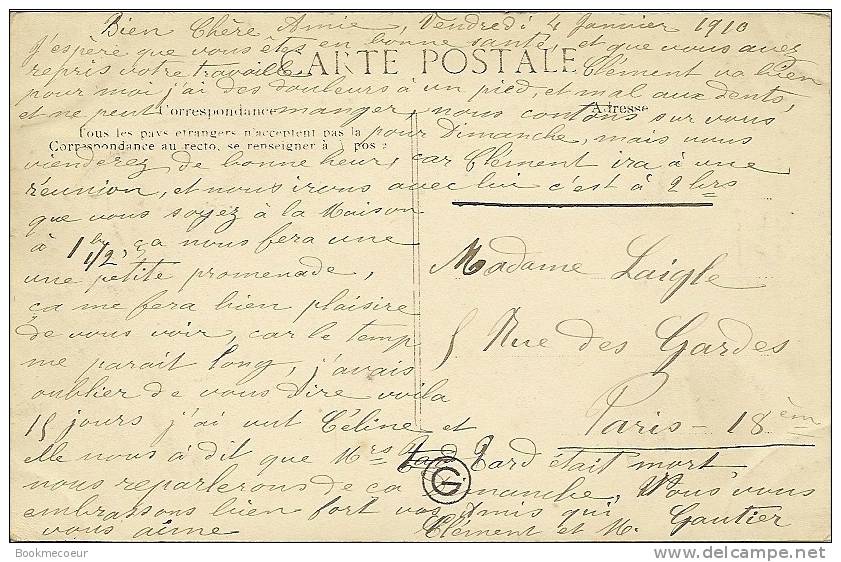 Bien Chère Amie, Vendredi 4 Janvier 1910
J'espère que vous êtes en bonne santé, et que vous avez
repris votre travaille. Clément va bien
CARTE POSTALE
pour moi j'ai des douleurs à un pied, et mal aux dents,
et ne peut manger, nous contons sur vous
Correspondance
Adresse
Tous les pays etrangers n'acceptent pas la
pour Dimanche, mais vous
Correspondance au recto, se renseigner à
vienderez de bonne heur, car Clément ira à une
réunion, et nous irons avec lui c'est à 2 hrs
que vous soyez à la Maison
à 1 h 1/2, ça nous fera une
une petite promenade,
ça me fera bien plaisire
de vous voir, car le temp
me parait long, j'avais
oublier de vous dire voila
15 jours j'ai vut Céline et
elle nous à dit que Mrs Tard était mort
nous reparlerons de ca Dimanche, Nous vous
embrassons bien fort vos Amis qui
vous aime
Clément et M. Gautier
Madame Laigle
5 Rue des Gardes
Paris - 18 èm
CG
Bookmecoeur
delcampe.net